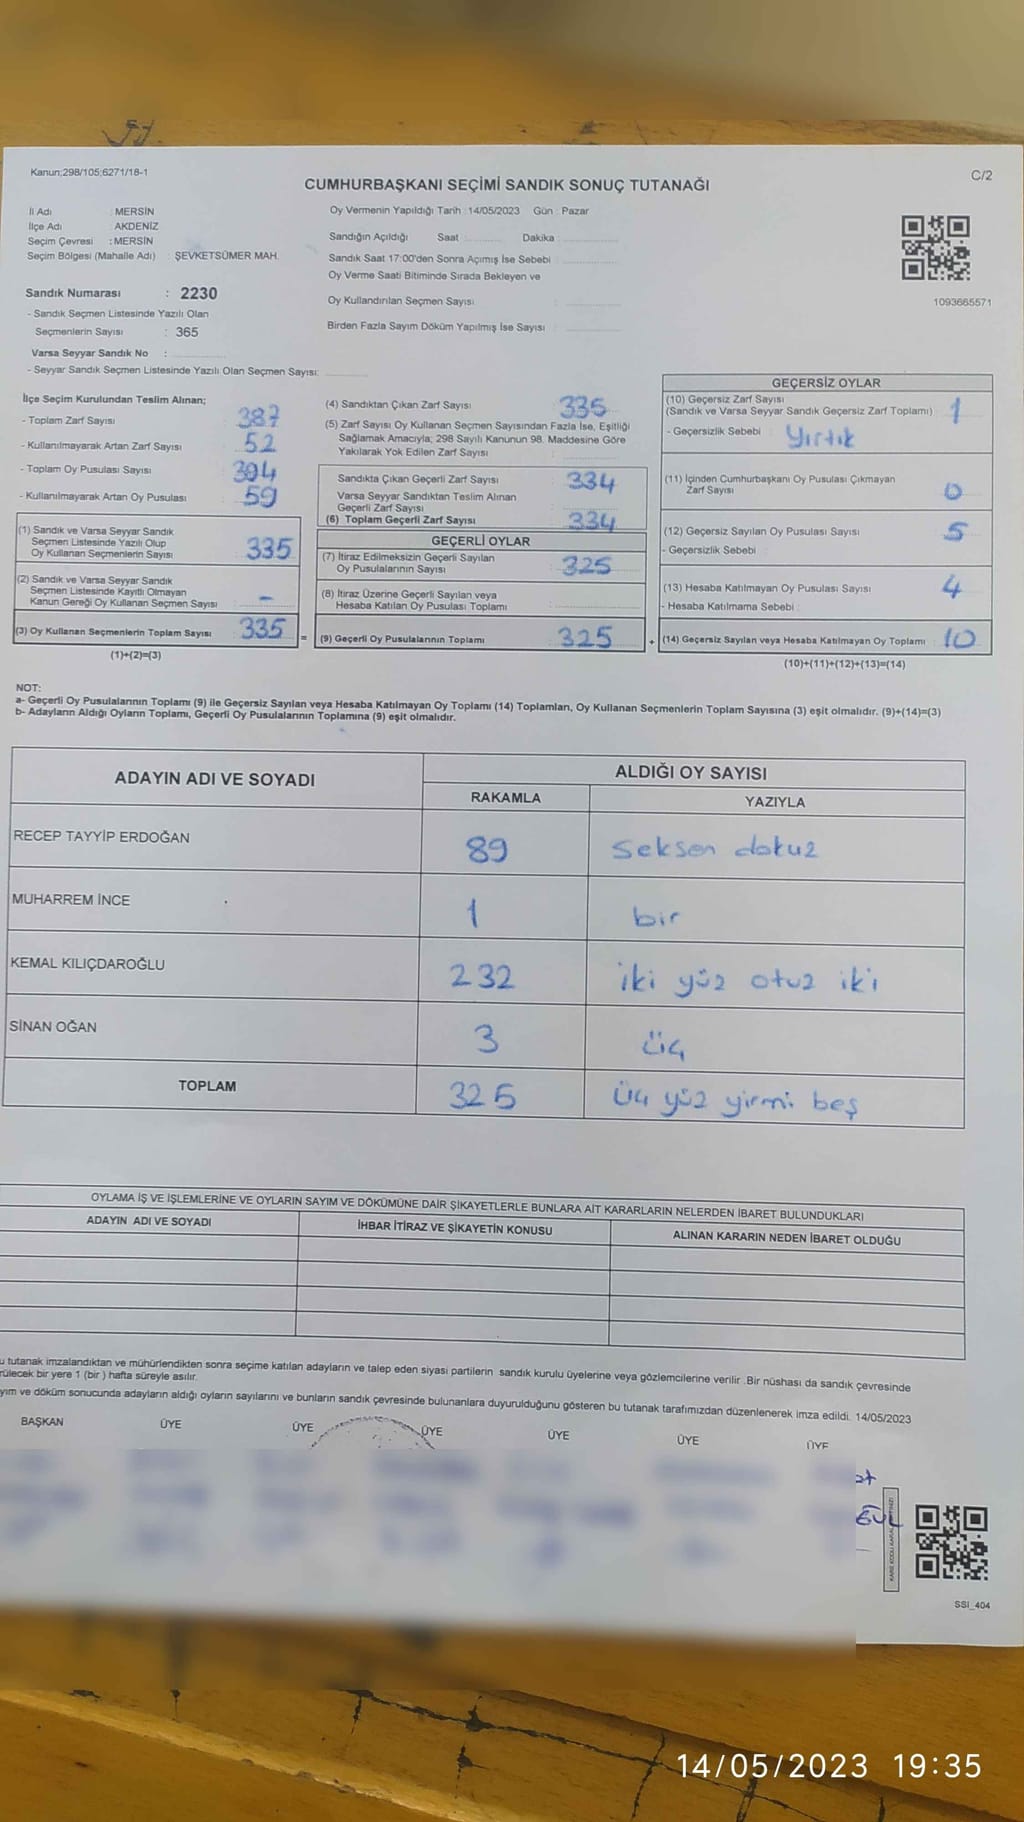 Kanun;298/105;6271/18-1
C/2
CUMHURBAŞKANI SEÇİMİ SANDIK SONUÇ TUTANAĞI
İl Adı : MERSİN
İlçe Adı AKDENİZ
Seçim Çevresi : MERSİN
Seçim Bölgesi (Mahalle Adı) : ŞEVKETSÜMER MAH.
Sandık Numarası : 2230
- Sandık Seçmen Listesinde Yazılı Olan
Seçmenlerin Sayısı : 365
Varsa Seyyar Sandık No :
- Seyyar Sandık Seçmen Listesinde Yazılı Olan Seçmen Sayısı:
Oy Vermenin Yapıldığı Tarih :14/05/2023 Gün : Pazar
Sandığın Açıldığı Saat Dakika
Sandık Saat 17:00'den Sonra Açımış İse Sebebi
Oy Verme Saati Bitiminde Sırada Bekleyen ve
Oy Kullandırılan Seçmen Sayısı
Birden Fazla Sayım Döküm Yapılmış İse Sayısı
1093665571
İlçe Seçim Kurulundan Teslim Alınan;
- Toplam Zarf Sayısı 387
- Kullanılmayarak Artan Zarf Sayısı 52
- Toplam Oy Pusulası Sayısı 394
- Kullanılmayarak Artan Oy Pusulası 59
(1) Sandık ve Varsa Seyyar Sandık
Seçmen Listesinde Yazılı Olup
Oy Kullanan Seçmenlerin Sayısı 335
(2) Sandık ve Varsa Seyyar Sandık
Seçmen Listesinde Kayıtlı Olmayan
Kanun Gereği Oy Kullanan Seçmen Sayısı -
(3) Oy Kullanan Seçmenlerin Toplam Sayısı 335 =
(1)+(2)=(3)
(4) Sandıktan Çıkan Zarf Sayısı 335
(5) Zarf Sayısı Oy Kullanan Seçmen Sayısından Fazla İse, Eşitliği
Sağlamak Amacıyla; 298 Sayılı Kanunun 98. Maddesine Göre
Yakılarak Yok Edilen Zarf Sayısı
Sandıkta Çıkan Geçerli Zarf Sayısı 334
Varsa Seyyar Sandıktan Teslim Alınan
Geçerli Zarf Sayısı
(6) Toplam Geçerli Zarf Sayısı 334
GEÇERLİ OYLAR
(7) İtiraz Edilmeksizin Geçerli Sayılan
Oy Pusulalarının Sayısı 325
(8) İtiraz Üzerine Geçerli Sayılan veya
Hesaba Katılan Oy Pusulası Toplamı
(9) Geçerli Oy Pusulalarının Toplamı 325 +
GEÇERSİZ OYLAR
(10) Geçersiz Zarf Sayısı
(Sandık ve Varsa Seyyar Sandık Geçersiz Zarf Toplamı) 1
- Geçersizlik Sebebi Yırtık
(11) İçinden Cumhurbaşkanı Oy Pusulası Çıkmayan
Zarf Sayısı 0
(12) Geçersiz Sayılan Oy Pusulası Sayısı 5
- Geçersizlik Sebebi
(13) Hesaba Katılmayan Oy Pusulası Sayısı 4
- Hesaba Katılmama Sebebi
(14) Geçersiz Sayılan veya Hesaba Katılmayan Oy Toplamı 10
(10)+(11)+(12)+(13)=(14)
NOT:
a- Geçerli Oy Pusulalarının Toplamı (9) ile Geçersiz Sayılan veya Hesaba Katılmayan Oy Toplamı (14) Toplamları, Oy Kullanan Seçmenlerin Toplam Sayısına (3) eşit olmalıdır. (9)+(14)=(3)
b- Adayların Aldığı Oyların Toplamı, Geçerli Oy Pusulalarının Toplamına (9) eşit olmalıdır.
ADAYIN ADI VE SOYADI ALDIĞI OY SAYISI
RAKAMLA YAZIYLA
RECEP TAYYİP ERDOĞAN 89 seksen dokuz
MUHARREM İNCE 1 bir
KEMAL KILIÇDAROĞLU 232 iki yüz otuz iki
SİNAN OĞAN 3 üç
TOPLAM 325 üç yüz yirmi beş
OYLAMA İŞ VE İŞLEMLERİNE VE OYLARIN SAYIM VE DÖKÜMÜNE DAİR ŞİKAYETLERLE BUNLARA AİT KARARLARIN NELERDEN İBARET BULUNDUKLARI
ADAYIN ADI VE SOYADI İHBAR İTİRAZ VE ŞİKAYETİN KONUSU ALINAN KARARIN NEDEN İBARET OLDUĞU
u tutanak imzalandıktan ve mühürlendikten sonra seçime katılan adayların ve talep eden siyasi partilerin sandık kurulu üyelerine veya gözlemcilerine verilir .Bir nüshası da sandık çevresinde
rülecek bir yere 1 (bir ) hafta süreyle asılır.
yım ve döküm sonucunda adayların aldığı oyların sayılarını ve bunların sandık çevresinde bulunanlara duyurulduğunu gösteren bu tutanak tarafımızdan düzenlenerek imza edildi. 14/05/2023
BAŞKAN ÜYE ÜYE ÜYE ÜYE ÜYE ÜYE
SSI_404
14/05/2023 19:35